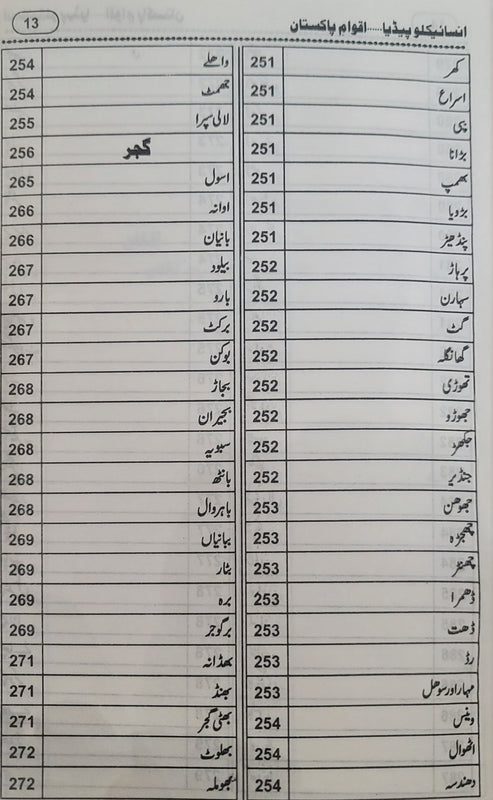 انسائیکلو پیڈیا.....اقوام پاکستان 13
کھر 251
اسراع 251
پبی 251
بڑانا 251
بھمپ 251
بڑویا 251
پنڈھیڑ 251
پرہاڑ 252
سہارن 252
گٹ 252
گھانگلہ 252
تھوڑی 252
جھوڑو 252
جکھڑ 252
جنڈیر 252
جھوجن 253
چھجڑہ 253
چھنڑ 253
ڈھمرا 253
ڈھت 253
رڈ 253
مہار اور سوھل 253
وینس 254
اٹھوال 254
دھندسہ 254
واھلے 254
چھمٹ 254
لالی سپرا 255
گجر 256
اسول 265
اوانہ 266
بانیان 266
بیلود 267
بارو 267
برکٹ 267
بوکن 267
بجاڑ 268
بجیران 268
سبویہ 268
بانٹھ 268
باہروال 268
ببانیاں 269
بٹار 269
برہ 269
برگوجر 269
بھڈانہ 271
بھنڈ 271
بھٹی گجر 271
بھلوٹ 272
بھوملہ 272